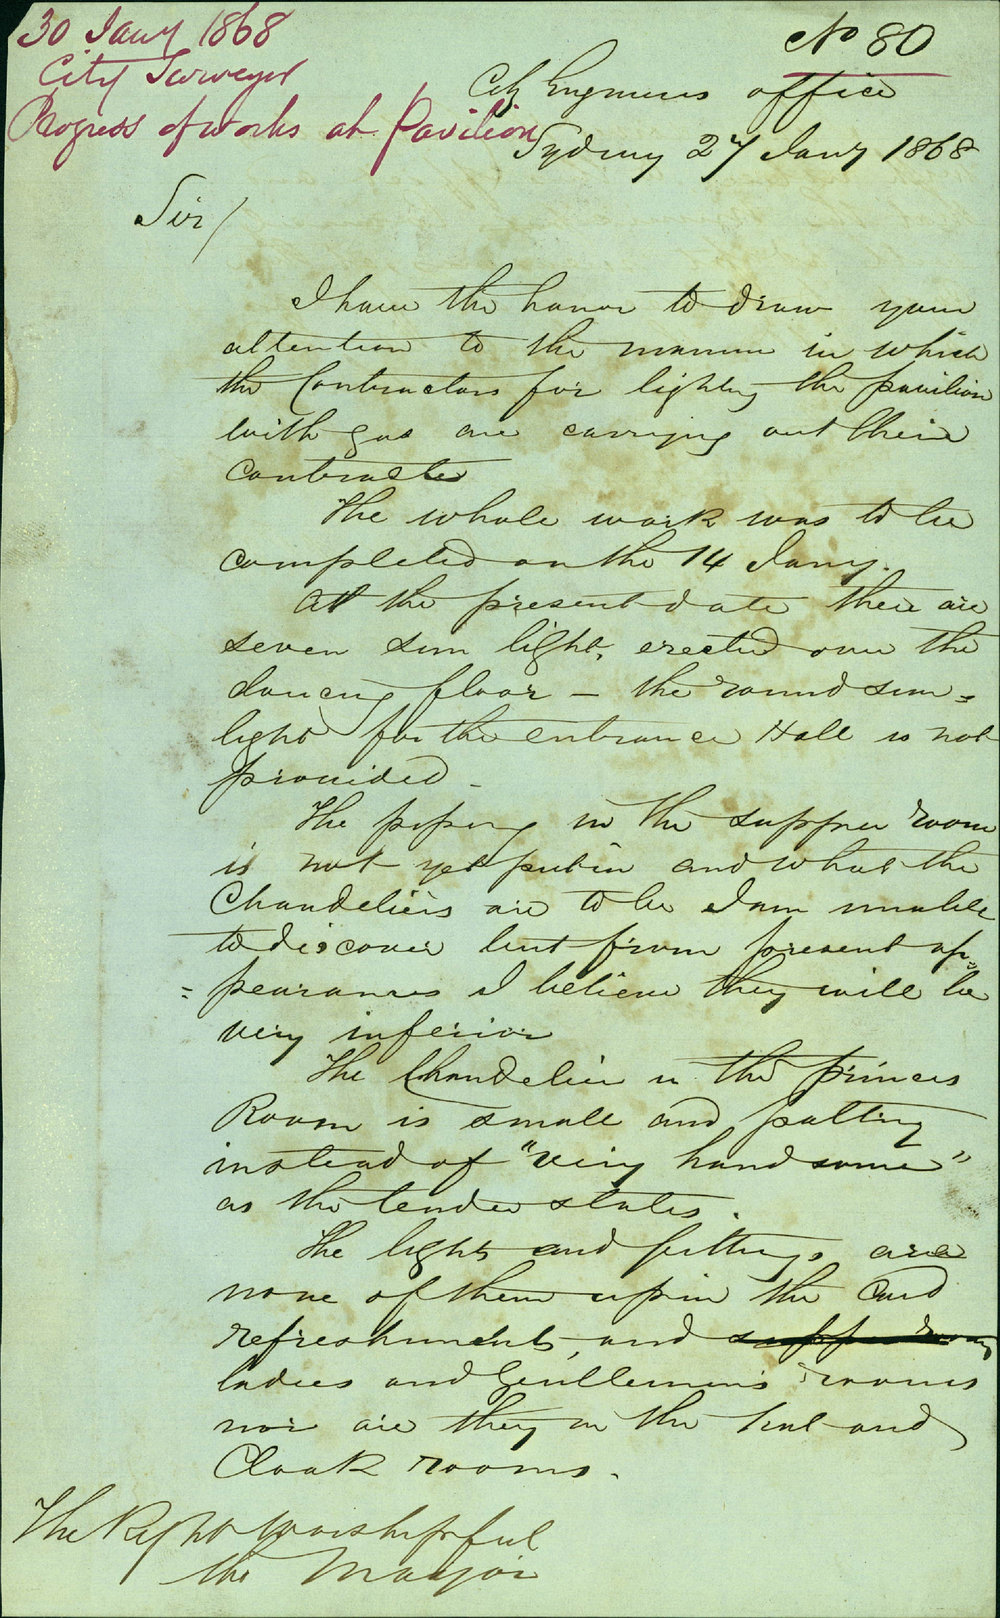 30 Jany 1868
City Surveyor
Progress of works at Pavilion
No 80
City Engineers office
Sydney 27 Jany 1868
Sir/
I have the honor to draw your
attention to the manner in which
the Contractors for lighting the pavilion
with gas are carrying out their
Contracts
The whole work was to be
completed on the 14 Jany.
At the present date there are
seven sun lights erected over the
dancing floor – the round sun=
light for the entrance Hall is not
provided –
The piping in the supper room
is not yet put in and what the
Chandeliers are to be I am unable
to discover but from present ap=
=pearances I believe they will be
very inferior
The Chandelier in the princes
Room is small and paltry
instead of "very handsome"
as the tender states.
The lights and fittings are
none of them up in the Card
refreshments, and supper room
ladies and Gentlemens rooms
nor are they in the hat and
Cloak rooms.
The Right Worshipful
the Mayor